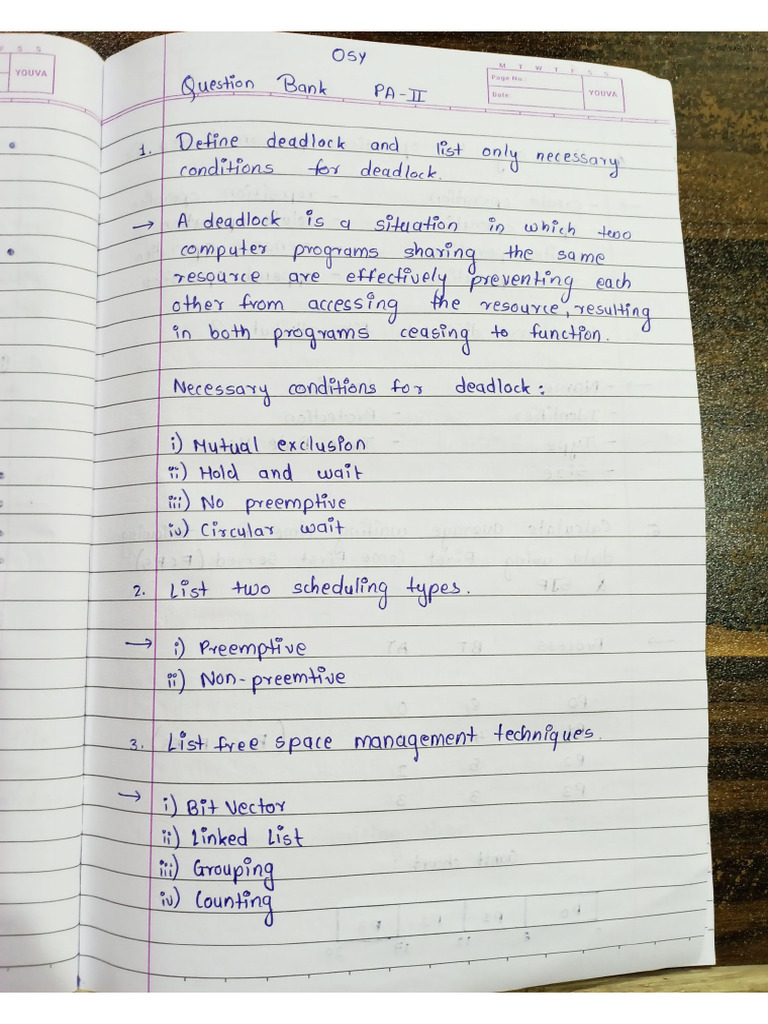 OSY
Question Bank PA-II
M T W T F S S
Page No.:
Date:
YOUVA
S S
YOUVA
1. Define deadlock and list only necessary
conditions for deadlock.
→ A deadlock is a situation in which two
computer programs sharing the same
resource are effectively preventing each
other from accessing the resource, resulting
in both programs ceasing to function.
Necessary conditions for deadlock:
i) Mutual exclusion
ii) Hold and wait
iii) No preemptive
iv) Circular wait
2. List two scheduling types.
→ i) Preemptive
ii) Non-preemtive
3. List free space management techniques.
→ i) Bit Vector
ii) Linked List
iii) Grouping
iv) Counting